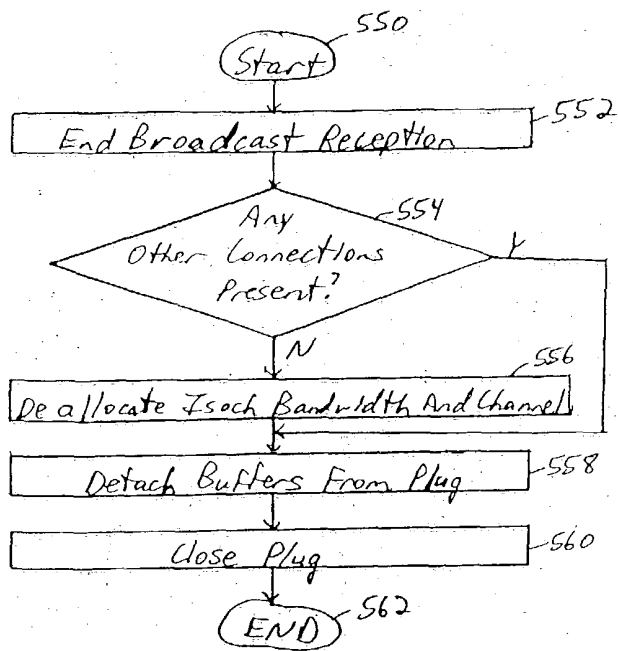 550
Start
552
End Broadcast Reception
554
Any
Other Connections
Present?
Y
N
556
Deallocate Isoch Bandwidth And Channel
558
Detach Buffers From Plug
560
Close Plug
562
END